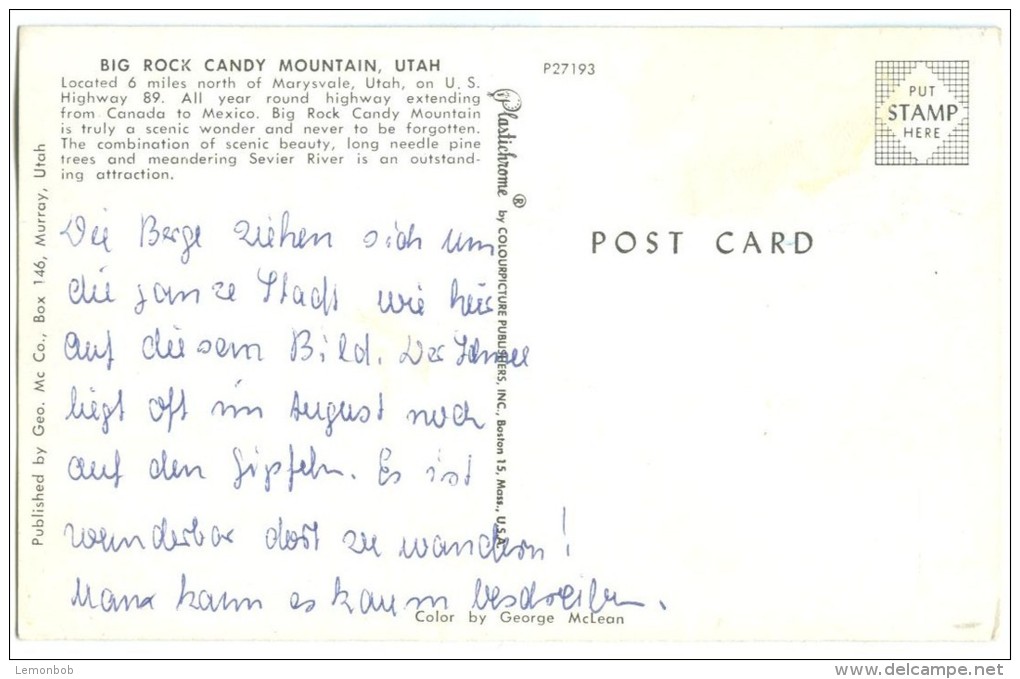 BIG ROCK CANDY MOUNTAIN, UTAH
Located 6 miles north of Marysvale, Utah, on U. S.
Highway 89. All year round highway extending
from Canada to Mexico. Big Rock Candy Mountain
is truly a scenic wonder and never to be forgotten.
The combination of scenic beauty, long needle pine
trees and meandering Sevier River is an outstand-
ing attraction.
P27193
PUT
STAMP
HERE
Published by Geo. Mc Co., Box 146, Murray, Utah
Plastichrome ® by COLOURPICTURE PUBLISHERS, INC., Boston 15, Mass., U.S.A.
POST CARD
Die Berge ziehen sich um
die ganze Stadt wie hier
auf diesem Bild. Der Schnee
liegt oft im August noch
auf den Gipfeln. Es ist
wunderbar dort zu wandern!
Mann kann es kaum beschreiben.
Color by George McLean
Lemonbob
www.delcampe.net